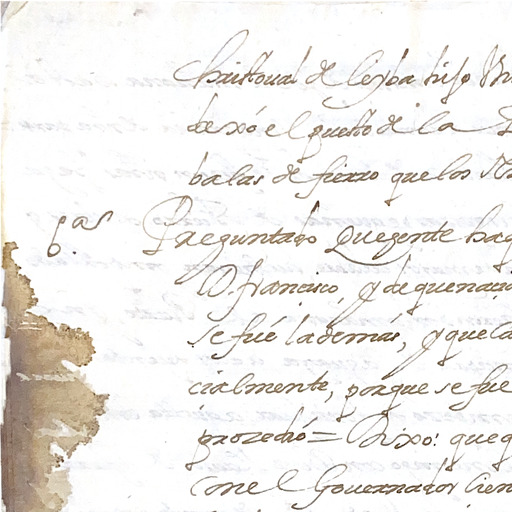 Christoual de leyba hijo
dexó el puesto de la
balas de fierro que los
6.as Preguntado Que gente
D. francisco, y de que nacio
se fué la demás, y que ca
cialmente, porque se fue
prozedió= Dixo: que
con el Gouernador